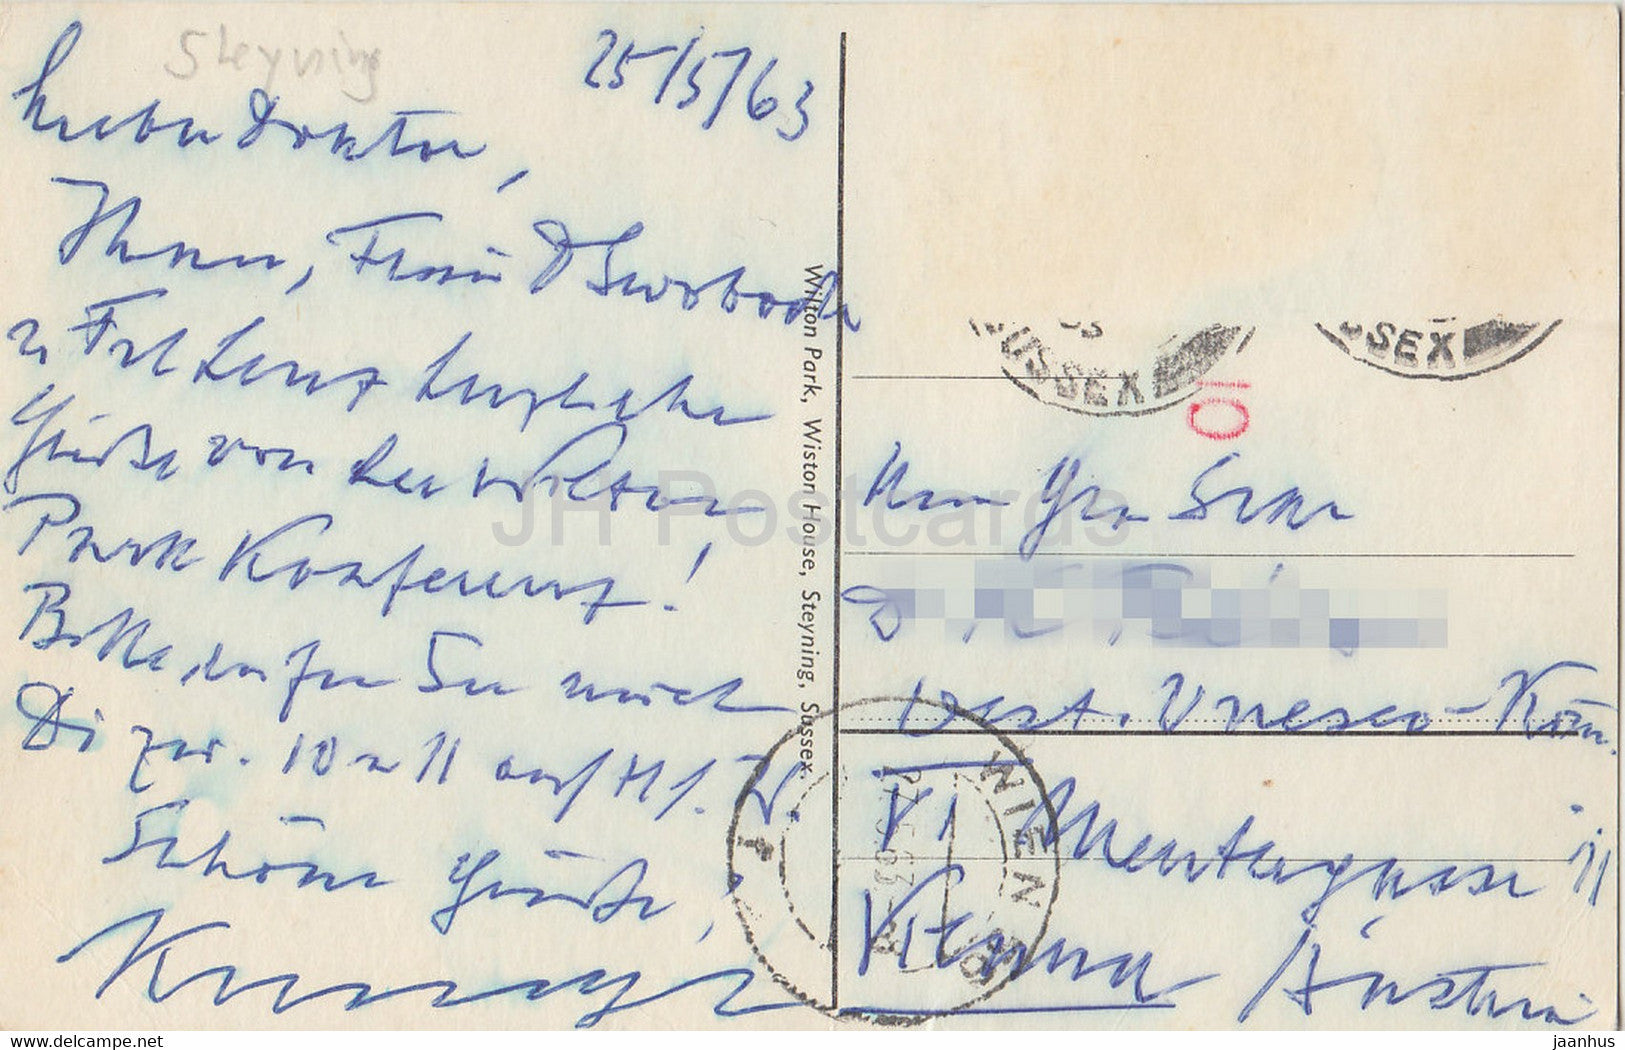 Steyning
25/5/63
Lieber Doktor,
Ihnen, Frau D Swoboda
u. Frl Lenz herzliche
Grüße von der Wilton
Park Konferenz!
Bitte rufen Sie mich
Di zw. 10 u 11 auf
Schöne Grüße,
Wilton Park, Wiston House, Steyning, Sussex.
SUSSEX
SSEX
10
Herrn Gen Sekr
D
Oest. Unesco-Kom.
VI Mentergasse 11
Vienna Austria
WIEN
27.5.63
JH Postcards
oldthing.net
jaanhus